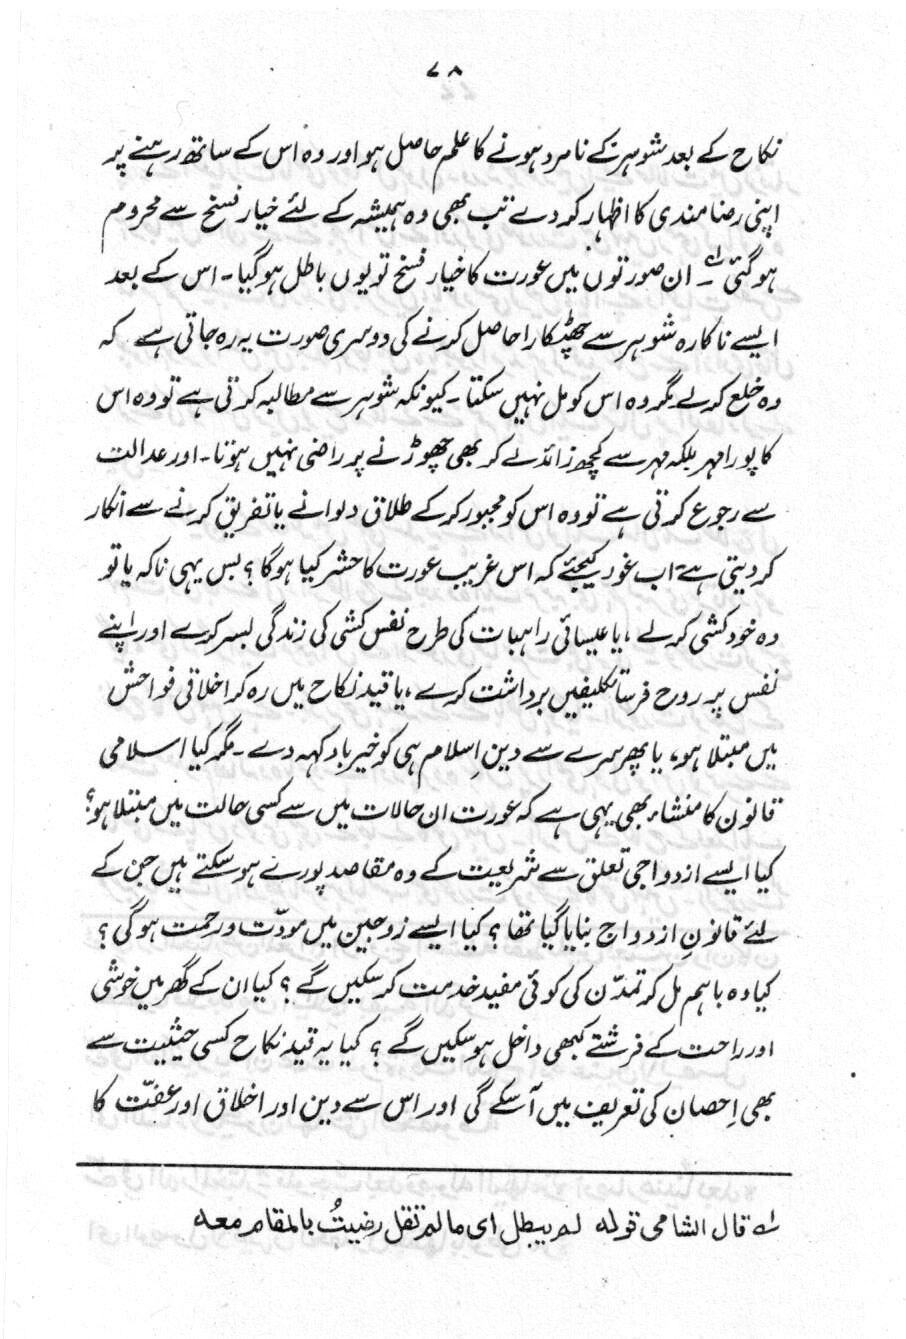 ۷۸
نکاح کے بعد شوہر کے نامرد ہونے کا علم حاصل ہو اور وہ اس کے ساتھ رہنے پر
اپنی رضامندی کا اظہار کردے تب بھی وہ ہمیشہ کے لئے خیار فسخ سے محروم
ہوگئی لہ۔ ان صورتوں میں عورت کا خیار فسخ تو یوں باطل ہوگیا۔ اس کے بعد
ایسے ناکارہ شوہر سے چھٹکارا حاصل کرنے کی دوسری صورت یہ رہ جاتی ہے کہ
وہ خلع کرلے مگر وہ اس کو مل نہیں سکتا۔ کیونکہ شوہر سے مطالبہ کرتی ہے تو وہ اس
کا پورا مہر بلکہ مہر سے کچھ زائد لے کر بھی چھوڑنے پر راضی نہیں ہوتا۔ اور عدالت
سے رجوع کرتی ہے تو وہ اس کو مجبور کرکے طلاق دلوانے یا تفریق کرنے سے انکار
کردیتی ہے۔ اب غور کیجئے کہ اس غریب عورت کا حشر کیا ہوگا؟ بس یہی نا کہ یا تو
وہ خودکشی کرلے، یا عیسائی راہبات کی طرح نفس کشی کی زندگی بسر کرے اور اپنے
نفس پر روح فرسا تکلیفیں برداشت کرے، یا قید نکاح میں رہ کر اخلاقی فواحش
میں مبتلا ہو، یا پھر سرے سے دینِ اسلام ہی کو خیرباد کہہ دے۔ مگر کیا اسلامی
قانون کا منشاء بھی یہی ہے کہ عورت ان حالات میں سے کسی حالت میں مبتلا ہو؟
کیا ایسے ازدواجی تعلق سے شریعت کے وہ مقاصد پورے ہوسکتے ہیں جن کے
لئے قانونِ ازدواج بنایا گیا تھا؟ کیا ایسے زوجین میں مودّت و رحمت ہوگی؟
کیا وہ باہم مل کر تمدّن کی کوئی مفید خدمت کرسکیں گے؟ کیا ان کے گھر میں خوشی
اور راحت کے فرشتے کبھی داخل ہوسکیں گے؟ کیا یہ قید نکاح کسی حیثیت سے
بھی اِحصان کی تعریف میں آسکے گی اور اس سے دین اور اخلاق اور عفّت کا
لہ قال الشامی قولہ لم یبطل ای مالم تقل رضیتُ بالمقام معہ